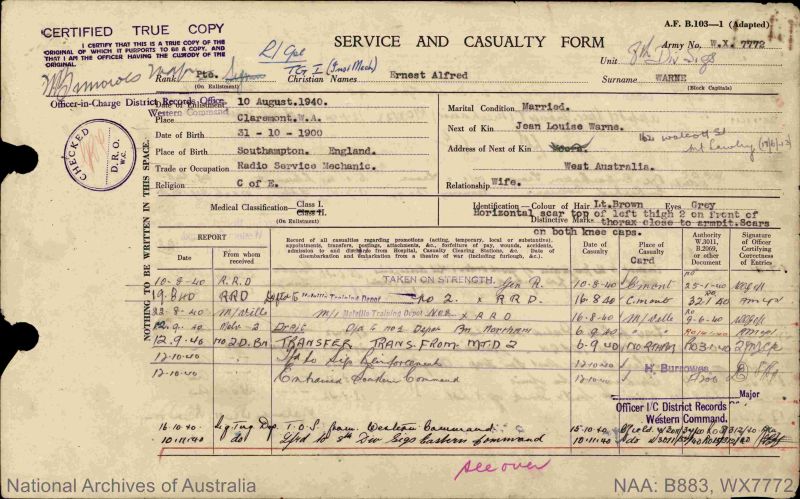 CERTIFIED TRUE COPY
I CERTIFY THAT THIS IS A TRUE COPY OF THE
ORIGINAL OF WHICH IT PURPORTS TO BE A COPY, AND
THAT I AM THE OFFICER HAVING THE CUSTODY OF THE
ORIGINAL.
A.F. B.103—1 (Adapted)
SERVICE AND CASUALTY FORM
Army No. W.X. 7772
Unit 8th Div Sigs
L/Cpl
TG I (Inst Mech)
Rank Pte.
(On Enlistment)
Christian Names Ernest Alfred
Surname WARNE
(Block Capitals)
Officer-in-Charge District Records Office
Western Command
CHECKED
D.R.O.
W.C.
NOTHING TO BE WRITTEN IN THIS SPACE.
Date of Enlistment 10 August.1940.
Place Claremont.W.A.
Date of Birth 31 - 10 - 1900
Place of Birth Southampton. England.
Trade or Occupation Radio Service Mechanic.
Religion C of E.
Marital Condition Married.
Next of Kin Jean Louise Warne.
Address of Next of Kin
162 Walcott St
Mt Lawley
West Australia.
Relationship Wife.
Medical Classification— Class I.
Class II.
(On Enlistment)
Identification—Colour of Hair Lt.Brown Eyes Grey
Distinctive Marks Horizontal scar top of left thigh 2 on front of
thorax close to armpit.Scars
on both knee caps.
REPORT
Date
From whom received
Record of all casualties regarding promotions (acting, temporary, local or substantive),
appointments, transfers, postings, attachments, &c., forfeiture of pay, wounds, accidents,
admission to and discharge from Hospital, Casualty Clearing Stations, &c. Date of
disembarkation and embarkation from a theatre of war (including furlough, &c.)
Date of Casualty
Place of Casualty
Card
Authority W.3011, B.2069, or other document
Signature of Officer Certifying Correctness of Entries
10-8-40 R.R.D TAKEN ON STRENGTH. Gen R. 10-8-40 C'mont 25-1-40
19.8.40 RRD Melville Training Depot No 2. x R.R.D. 16-8-40 C.mont 32.1.40
22-8-40 M/ville M/I Melville Training Depot No 2 x R R D 16-8-40 M/ville 9-6-40
12.9.40 6.9.40
12.9.40 NO 2 D.Bn TRANSFER TRANS. FROM M.T.D 2 6-9-40
12-10-40 Tfd to Sig Reinforcements 12-10-40
12-10-40 Entrained Eastern Command 12-10-40
H. Burrowes
Major
Officer I/C District Records
Western Command.
16-10-40 Sig Trng Dep. T.O.S. from Western Command 15-10-40
10-11-40 do Tfrd to 8th Div Sigs Eastern Command 10-11-40 do
see over
National Archives of Australia
NAA: B883, WX7772